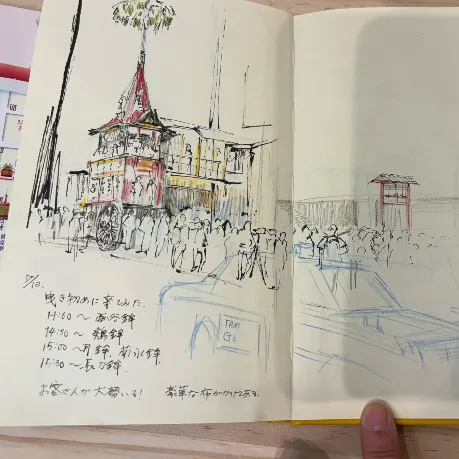 7/12.
曳き初めに来てみた。
14:00〜函谷鉾
14:30〜鶏鉾
15:00〜月鉾、菊水鉾、
15:30〜長刀鉾、
お客さんが大勢いる! 豪華な布がかけてある。
TAXI
GO